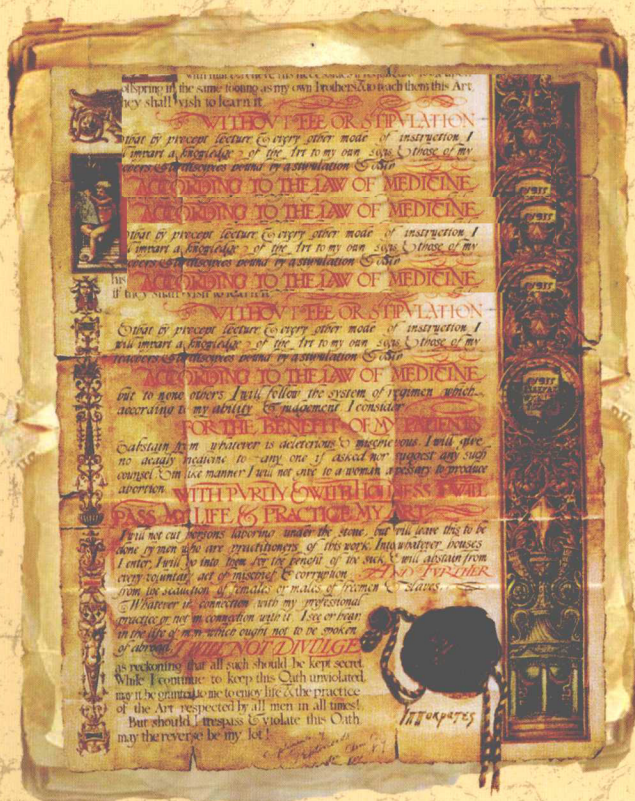 offspring in the same footing as my own brothers & to teach them this Art,
they shall wish to learn it
WITHOVT FEE OR STIPVLATION
that by precept lecture & every other mode of instruction I
impart a knowledge of the Art to my own sons & those of my
bound by a stipulation &
ACCORDING TO THE LAW OF MEDICINE
ACCORDING TO THE LAW OF MEDICINE
that by precept lecture & every other mode of instruction I
impart a knowledge of the Art to my own sons & those of my
bound by a stipulation &
ACCORDING TO THE LAW OF MEDICINE
his
if they shall wish to learn it
WITHOVT FEE OR STIPVLATION
& that by precept lecture & every other mode of instruction I
will impart a knowledge of the Art to my own sons & those of my
teachers & bound by a stipulation &
ACCORDING TO THE LAW OF MEDICINE
but to none others I will follow the system of regimen which
according to my ability & judgement I consider
FOR THE BENEFIT OF MY PATIENTS
& abstain from whatever is deleterious & mischievous. I will give
no deadly medicine to any one if asked nor suggest any such
counsel & in like manner I will not give to a woman a pessary to produce
abortion. WITH PVRITY & WITH HOLINESS I WILL
PASS MY LIFE & PRACTICE MY ART
I will not cut persons laboring under the stone, but will leave this to be
done by men who are practitioners of this work. Into whatever houses
I enter, I will go into them for the benefit of the sick & will abstain from
every voluntary act of mischief & corruption & FVRTHER
from the seduction of females or males of freemen & slaves.
Whatever in connection with my professional
practice or not in connection with it I see or hear
in the life of men which ought not to be spoken
of abroad I WILL NOT DIVULGE
as reckoning that all such should be kept secret
While I continue to keep this Oath unviolated
may it be granted to me to enjoy life & the practice
of the Art respected by all men in all times!
But should I trespass & violate this Oath
may the reverse be my lot!
Ἱπποκρατες